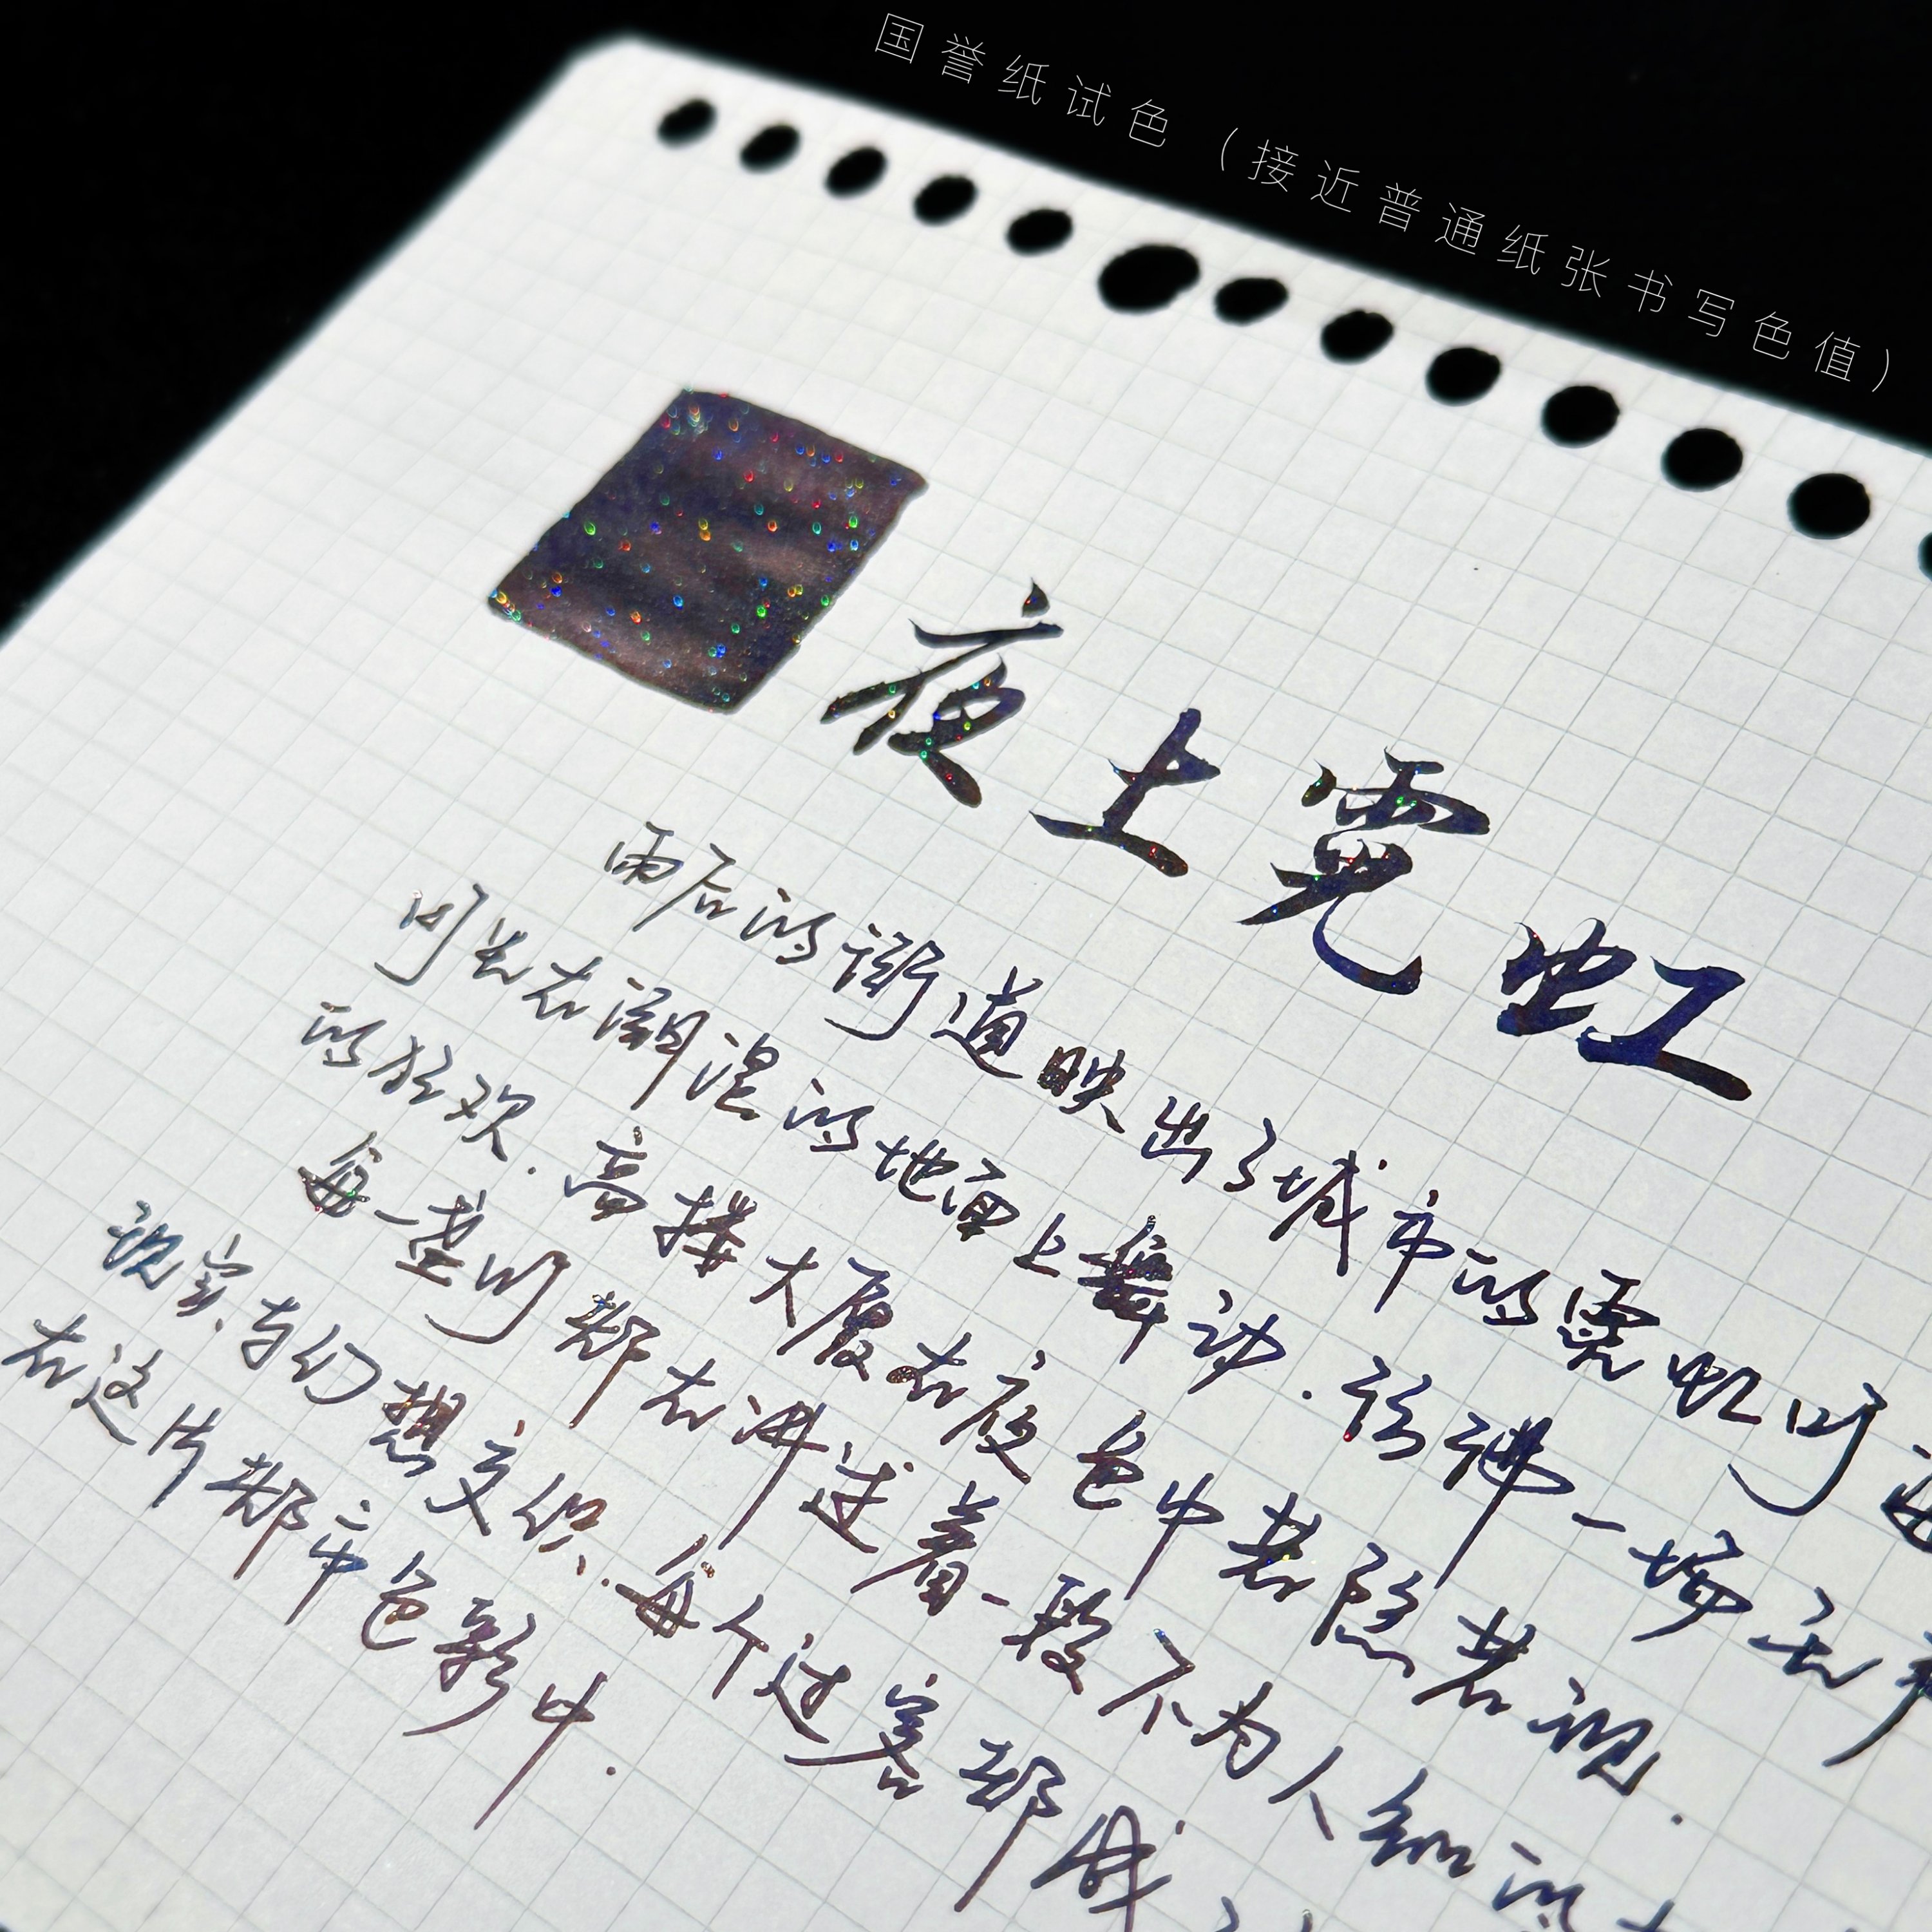 国誉纸试色（接近普通纸张书写色值）
夜上霓虹
雨后的街道映出了城市的霓虹灯
灯光在潮湿的地面上舞动.仿佛一场无声
的狂欢.高楼大厦在夜色中若隐若现.
每一盏灯都在讲述着一段不为人知的
现实与幻想交织.每个过客都成
在这片都市色彩中.